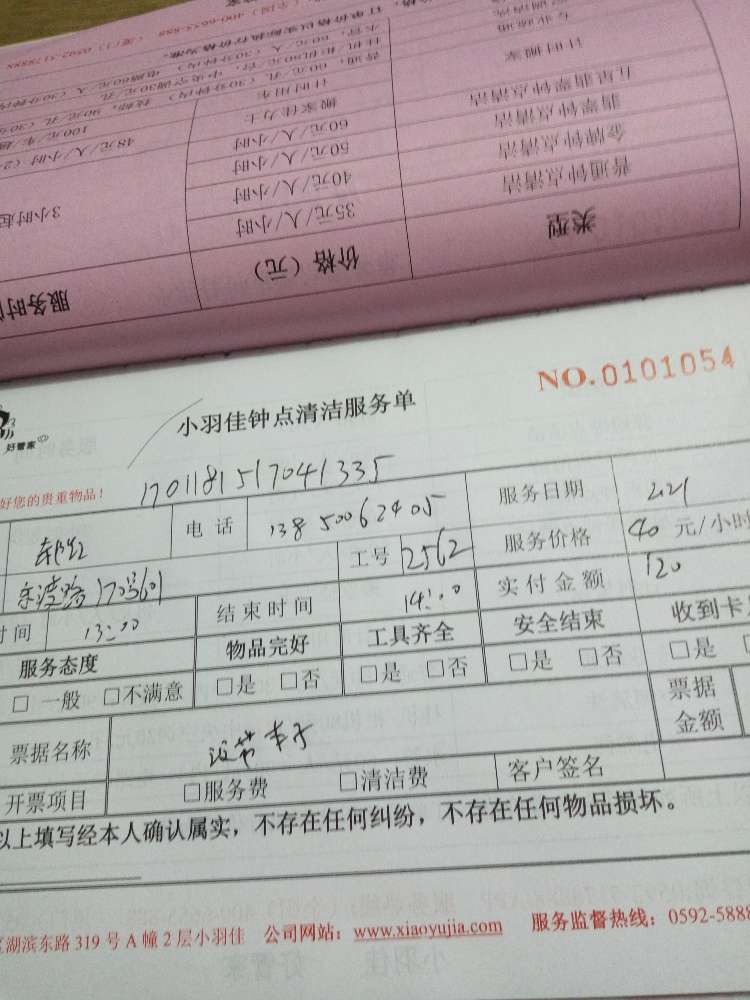 服务时
价格（元）
类型
3小时起
35元/人/小时
普通钟点清洁
40元/人/小时
金牌钟点清洁
50元/人/小时
翡翠钟点清洁
48元/人/小时
60元/人/小时
五星翡翠钟点清洁
100元/车/
搬家佳力士
计时用车
计时搬家
NO.0101054
好管家
小羽佳钟点清洁服务单
好您的贵重物品！
1701181517041335
电 话
13850062405
服务日期
2.21
170号601
工号
2562
服务价格
40 元/小时
时间
13:00
结束时间
14:00
实付金额
120
服务态度
物品完好
工具齐全
安全结束
收到卡
□ 一般 □不满意
□是 □否
□是 □否
□是 □否
□是
票据名称
没带本子
票据
金额
开票项目
□服务费
□清洁费
客户签名
以上填写经本人确认属实，不存在任何纠纷，不存在任何物品损坏。
湖滨东路 319 号 A 幢 2 层小羽佳 公司网站：www.xiaoyujia.com 服务监督热线：0592-5888